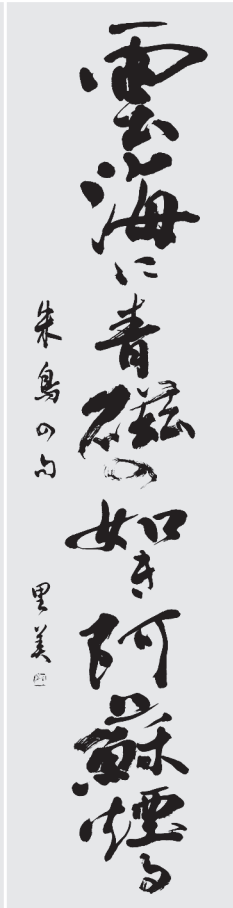 雲海に青磁の如き阿蘇煙る
朱鳥の句
里美